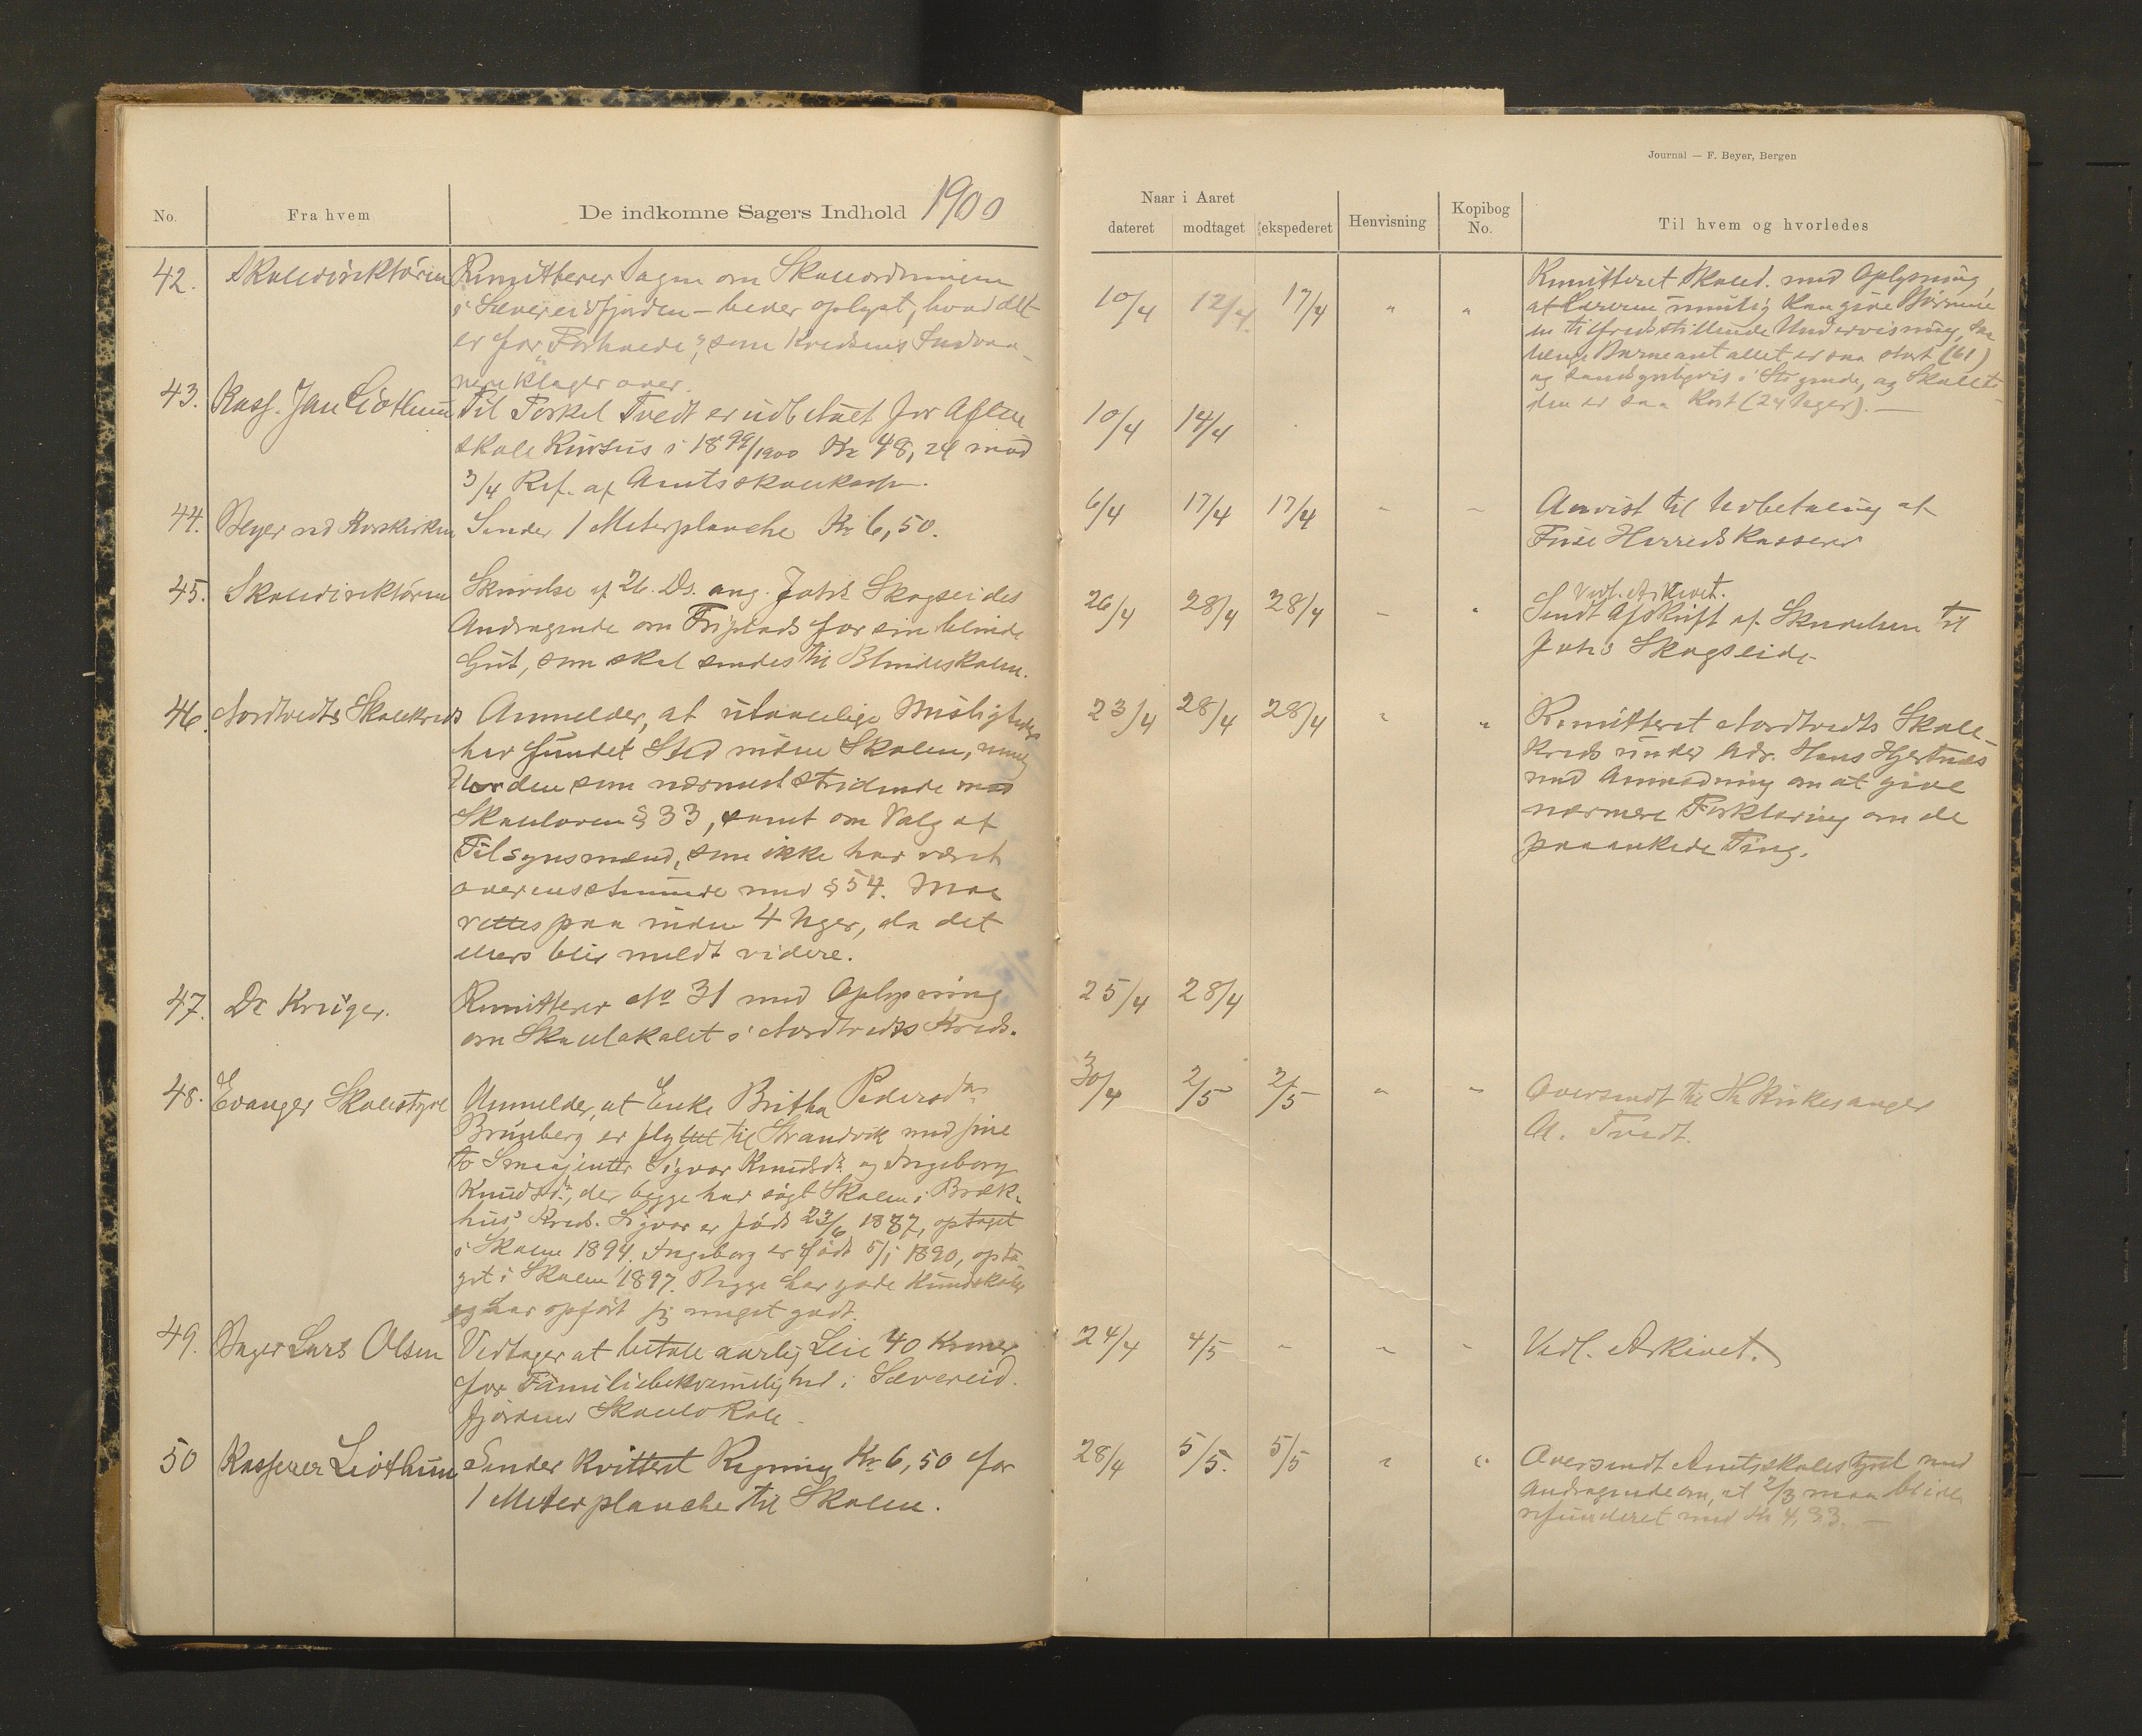 Journal — F. Beyer, Bergen
No.
Fra hvem
De indkomne Sagers Indhold 1900
Naar i Aaret
dateret
modtaget
ekspederet
Henvisning
Kopibog
No.
Til hvem og hvorledes
42. Skoledirektøren
Remitterer Sagen om Skoleordningen
i Sævereidfjorden - beder oplyst, hvad det
er for "Forhaede", som Kredsens
klager over.
10/4 12/4 17/4 " "
Remitteret Skoled. med Oplysning,
at Læreren umulig kan give Børnene
en tilfredsstillende Undervisning, saa
længe Barneantallet er saa stort (61)
og sandsynligvis i Stigende, og Skoleti-
den er saa kort (24 Uger). —
43. Kass. Jan Liothun
Til Torkel Tvedt er udbetalt for Aften
skole Kursus i 1899/1900 Kr 48,24 mod
3/4 Ref. af Amtsskolekassen.
10/4 14/4
44. Beyer ved Korskirken
Sender 1 Meterplanche Kr 6,50.
6/4 17/4 17/4 " "
Anvist til Udbetaling af
Fuse Herreds Kasserer
45. Skoledirektøren
Skrivelse af 26. Ds. ang. Johs Skogseides
Andragende om Friplads for sin blinde
Gut, som skal sendes til Blindeskolen.
26/4 28/4 28/4 " "
Vedl. Arkivet.
Sendt Afskrift af Skrivelsen til
Johs Skogseide
46. Nordtvedts Skolekreds
Anmelder, at utaalelige Misligheder
har fundet Sted inden Skolen, nemlig
Uorden som nærmest stridende mod
Skoleloven § 33, samt om Valg af
Tilsynsmænd, som ikke har været
overensstemmende med § 54. Maa
rettes paa inden 4 Uger, da det
ellers blir meldt videre.
23/4 28/4 28/4 " "
Remitteret Nordtvedts Skole-
kreds under Adr. Hans Hjertnæs
med Anmodning om at give
nærmere Forklaring om de
paaankede Ting.
47. Dr Krüger.
Remitterer No 31 med Oplysning
om Skolelokalet i Nordtvedts Kreds.
25/4 28/4
48. Evanger Skolestyre
Anmelder, at Enke Britha Pedersdr
Brunberg er flyttet til Strandvik med sine
to Smaajenter Sigvor Knudsdr og Ingeborg
Knudsdr, der begge har søgt Skolen i Bræk-
hus Kreds. Sigvor er født 23/6 1887, optaget
i Skolen 1894. Ingeborg er født 5/1 1890, opta-
get i Skolen 1897. Begge har gode Kundskaber
og har opført sig meget godt.
30/4 2/5 2/5 " "
Oversendt til Hr Kirkesanger
A. Tvedt.
49. Lars Olsen
Vedtager at betale aarlig Leie 40 Kroner
for Familiebekvemmelighed i Sævereid-
fjordens Skolelokale
24/4 4/5 " " "
Vedl. Arkivet.
50 Kasserer Liothun
Sender kvittert Regning Kr 6,50 for
1 Meterplanche til Skolen.
28/4 5/5. 5/5 " "
Oversendt Amtsskolestyret med
Andragende om, at 2/3 maa blive
refunderet med Kr 4,33. —